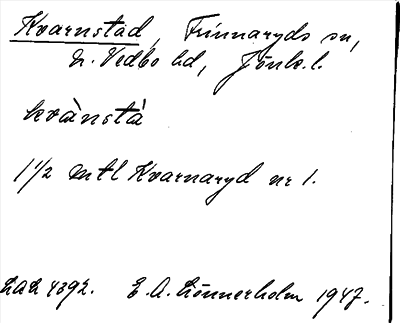 Kvarnstad, Frinnaryds sn,
N. Vedbo hd, Jönk. l.
kvà̄nstá̄
1 1/2 mtl Kvarnaryd nr 1.
LAL 4392. E. A. Lönnerholm 1947.